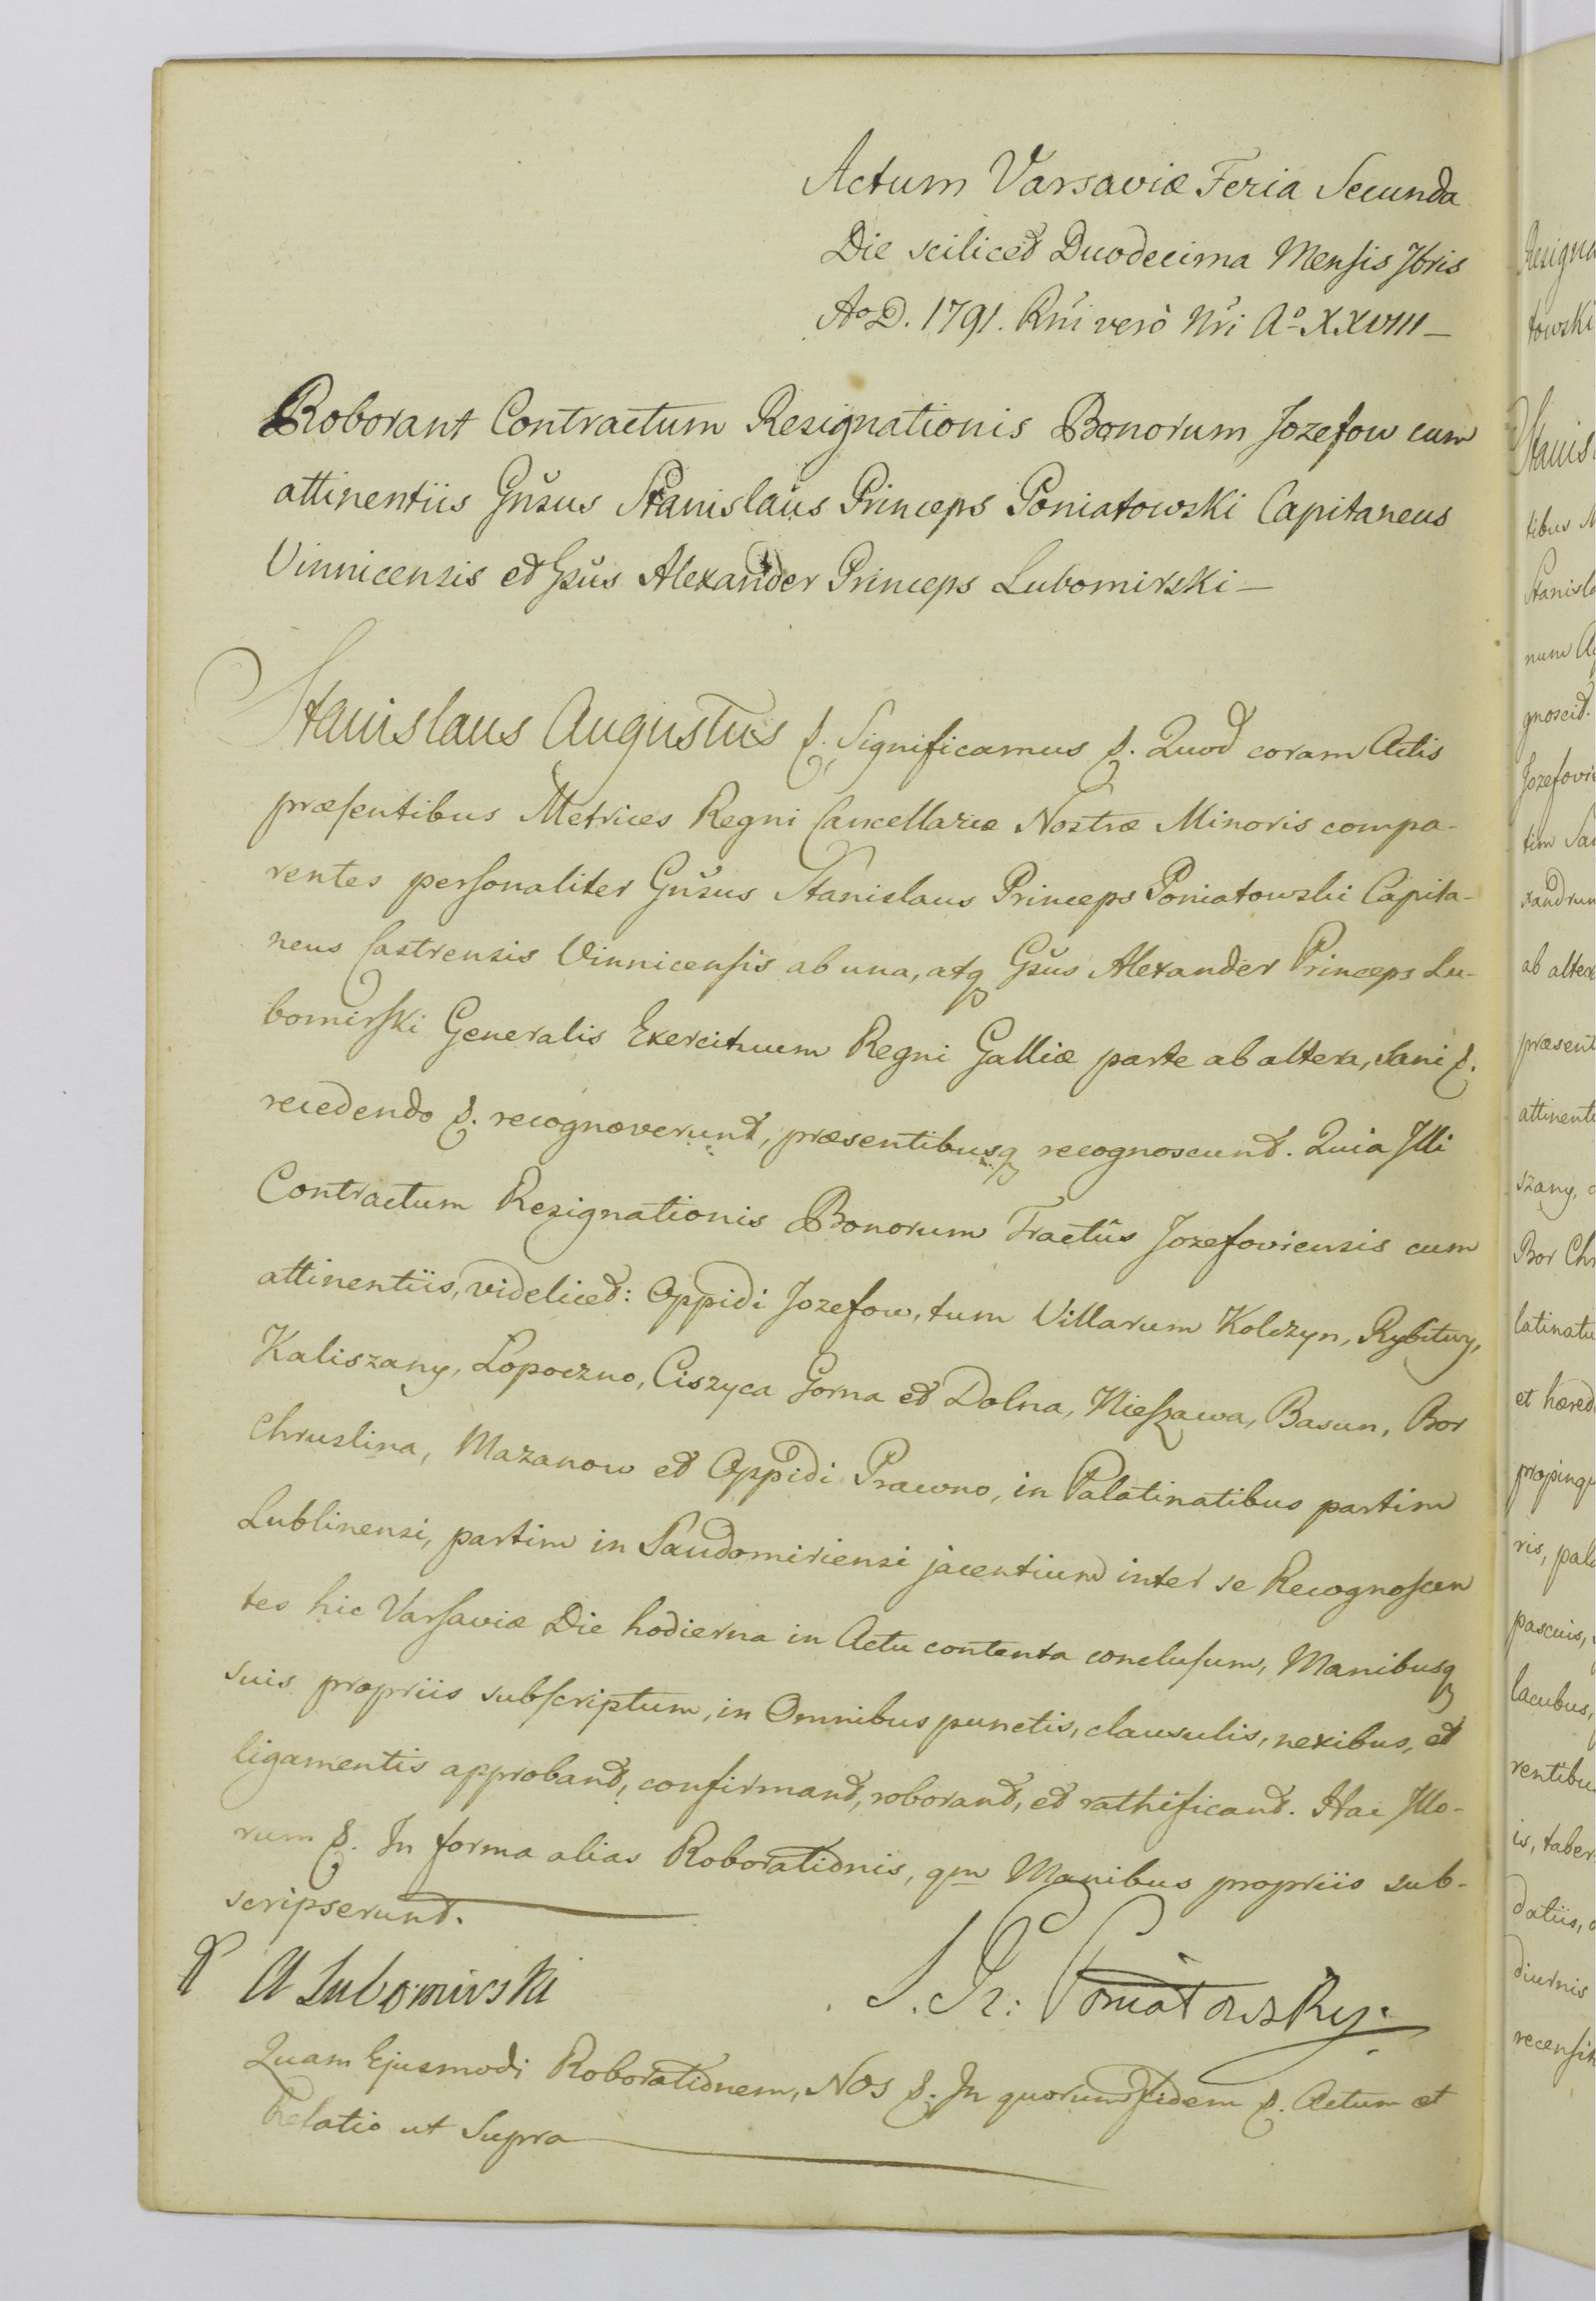 Actum Varsaviæ Feria Secunda
Die scilicet Duodecima Mensis 7bris
Ao D. 1791. Rñi verò Nři Aº XXVIII —
Roborant Contractum Resignationis Bonorum Jozefow cum
attinentiis Gňsus Stanislaus Princeps Poniatowski Capitaneus
Vinnicensis et Gsůs Alexander Princeps Lubomirski —
Stanislaus Augustus &. Significamus &. Quod coram Actis
præsentibus Metrices Regni Cancellariæ Nostræ Minoris compa-
rentes personaliter Gňsus Stanislaus Princeps Poniatowski Capita-
neus Castrensis Vinnicensis ab una, atq Gsůs Alexander Princeps Lu-
bomirski Generalis Exercituum Regni Galliæ parte ab altera, sani &.
recedendo &. recognoverunt, præsentibusq recognoscunt. Quia Illi
Contractum Resignationis Bonorum Tractûs Jozefoviensis cum
attinentiis, videlicet: Oppidi Jozefow, tum Villarum Kolczyn, Rybitwy,
Kaliszany, Lopoczno, Ciszyca Gorna et Dolna, Nieszawa, Basun, Bor
Chruslina, Mazanow et Oppidi Prawno, in Palatinatibus partim
Lublinensi, partim in Sandomiriensi jacentium inter se Recognoscen
tes hic Varsaviæ Die hodierna in Actu contenta conclusum, Manibusq
suis propriis subscriptum, in Omnibus punctis, clausulis, nexibus, et
ligamentis approbant, confirmant, roborant, et rathificant. Hac Illo-
rum &. In forma alias Roborationis, qm Manibus propriis sub-
scripserunt.
A Lubomirski S. Xr: Poniatowsky.
Quam Ejusmodi Roborationem, Nos &. In quorum fidem &. Actum et
Relatio ut Supra
Resigna
towski
Stanis
tibus
Stanisla
num
gnoscit.
Jozefovie
tim
xandrum
ab altera
præsent
attinent
szany,
Bor Chr
latinatu
et hæred
propinqu
ris, palu
pascuis,
lacubus,
rentibu
is, taber
datiis,
diurnis
recensit